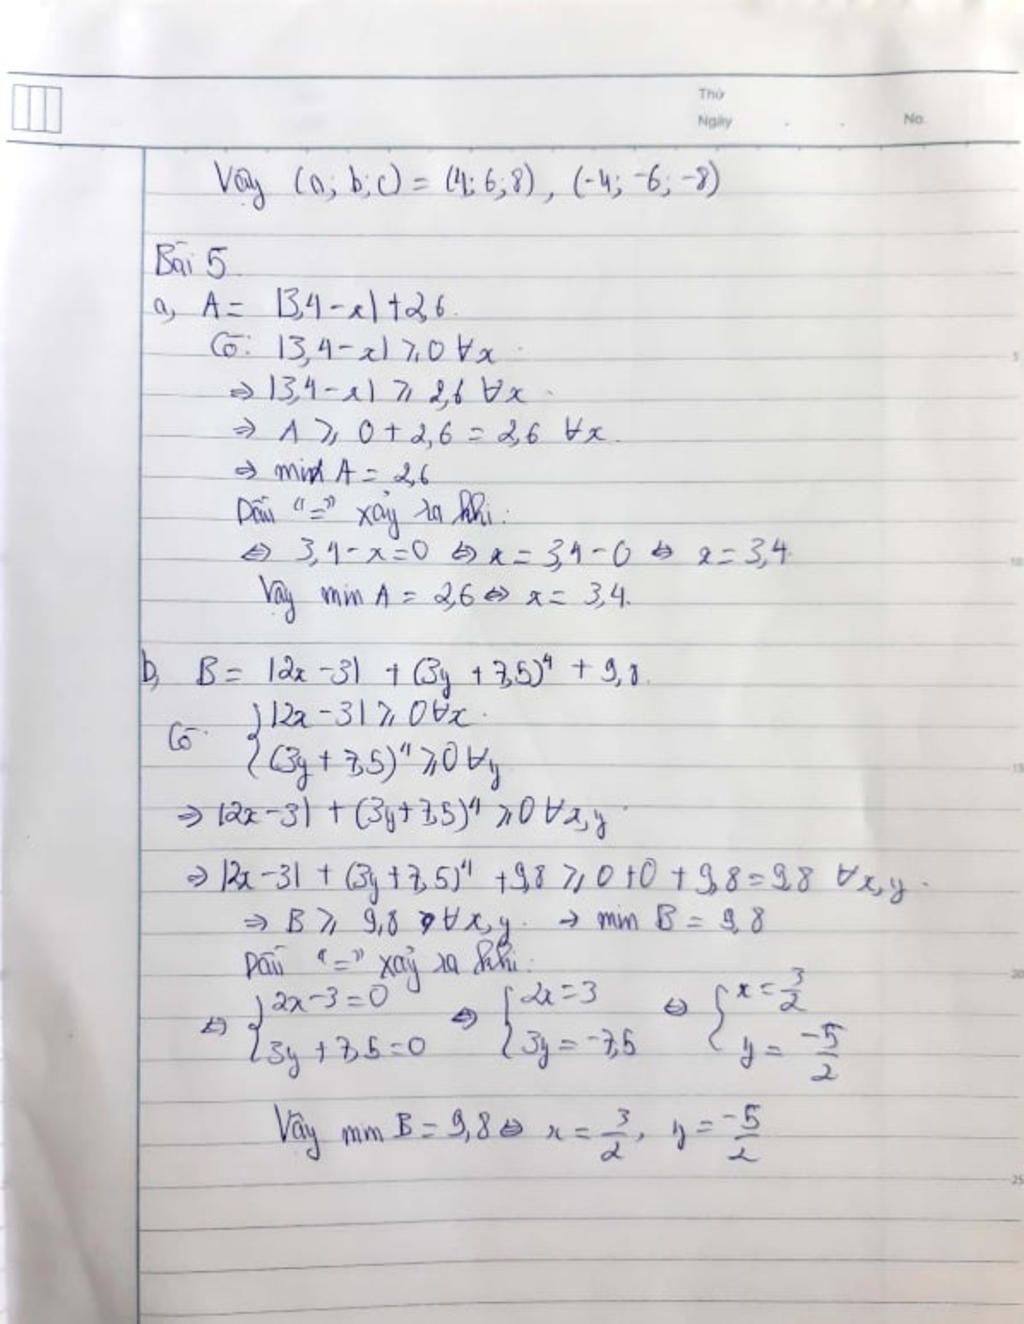 Thứ
Ngày . . No.
Vậy (a; b; c) = (4; 6; 8), (-4; -6; -8)
Bài 5
a, A = |3,4 - x| + 2,6.
Có: |3,4 - x| ⩾ 0 ∀x
⇒ |3,4 - x| ⩾ 2,6 ∀x
⇒ A ⩾ 0 + 2,6 = 2,6 ∀x.
⇒ min A = 2,6
Dấu "=" xảy ra khi:
⇔ 3,4 - x = 0 ⇔ x = 3,4 - 0 ⇔ x = 3,4
Vậy min A = 2,6 ⇔ x = 3,4.
b, B = |2x - 3| + (3y + 7,5)⁴ + 9,8.
Có { |2x - 3| ⩾ 0 ∀x
(3y + 7,5)⁴ ⩾ 0 ∀y
⇒ |2x - 3| + (3y + 7,5)⁴ ⩾ 0 ∀x,y
⇒ |2x - 3| + (3y + 7,5)⁴ + 9,8 ⩾ 0 + 0 + 9,8 = 9,8 ∀x,y.
⇒ B ⩾ 9,8 ∀x,y. → min B = 9,8
Dấu "=" xảy ra khi:
⇔ { 2x - 3 = 0 ⇔ { 2x = 3 ⇔ { x = 3/2
3y + 7,5 = 0 3y = -7,5 y = -5/2
Vậy min B = 9,8 ⇔ x = 3/2, y = -5/2
5
10
15
20
25